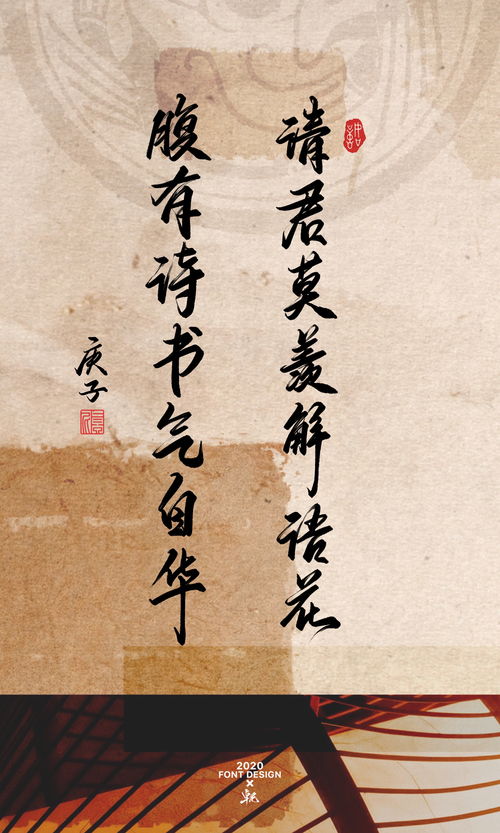 请君莫羡解语花
腹有诗书气自华
庚子
2020
FONT DESIGN
×